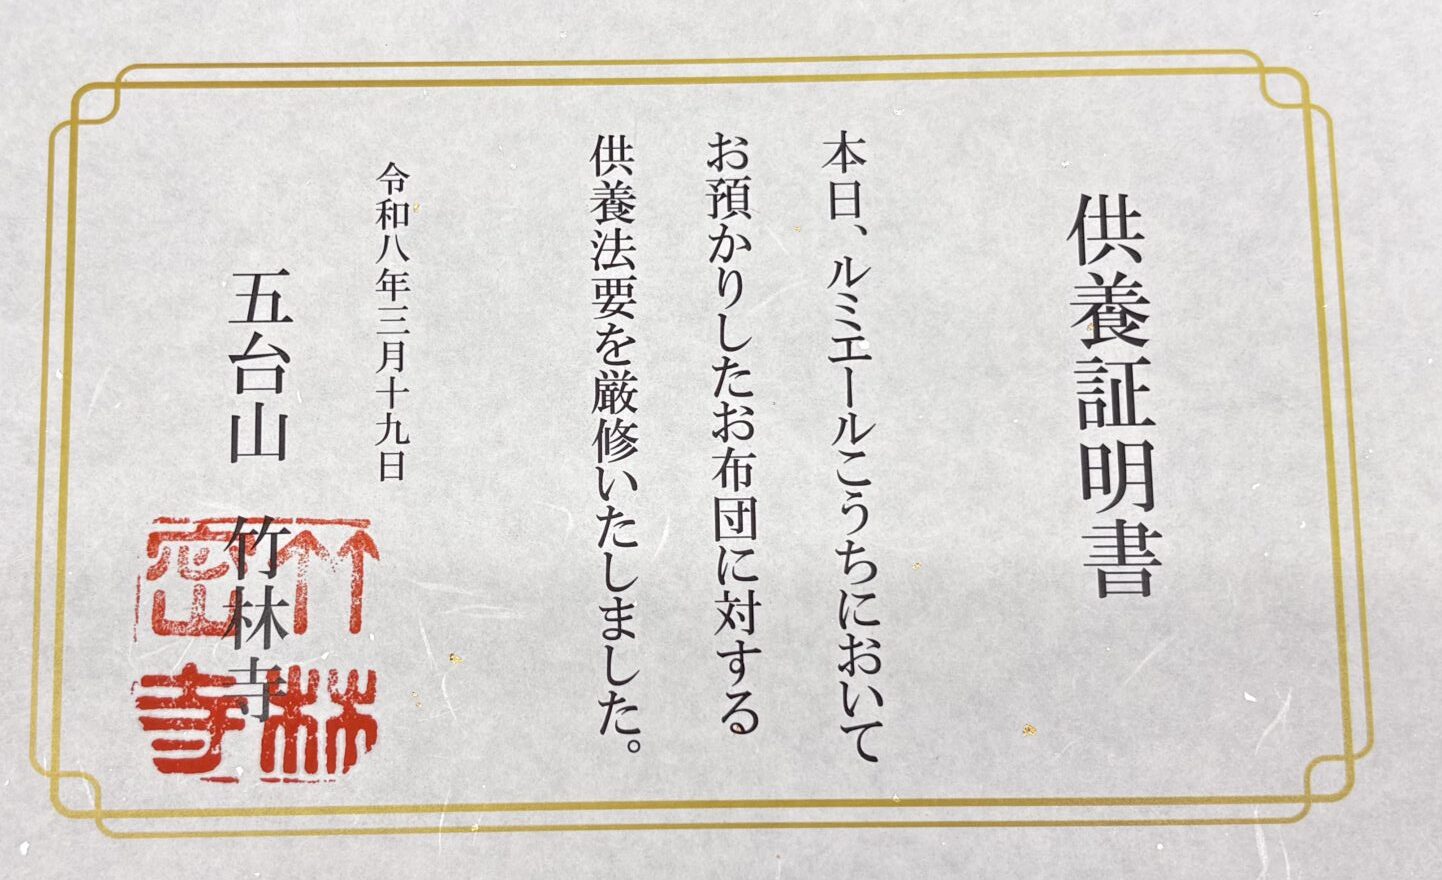 供養証明書
本日、ルミエールこうちにおいて
お預かりしたお布団に対する
供養法要を厳修いたしました。
令和八年三月十九日
五台山 竹林寺
竹林
密寺